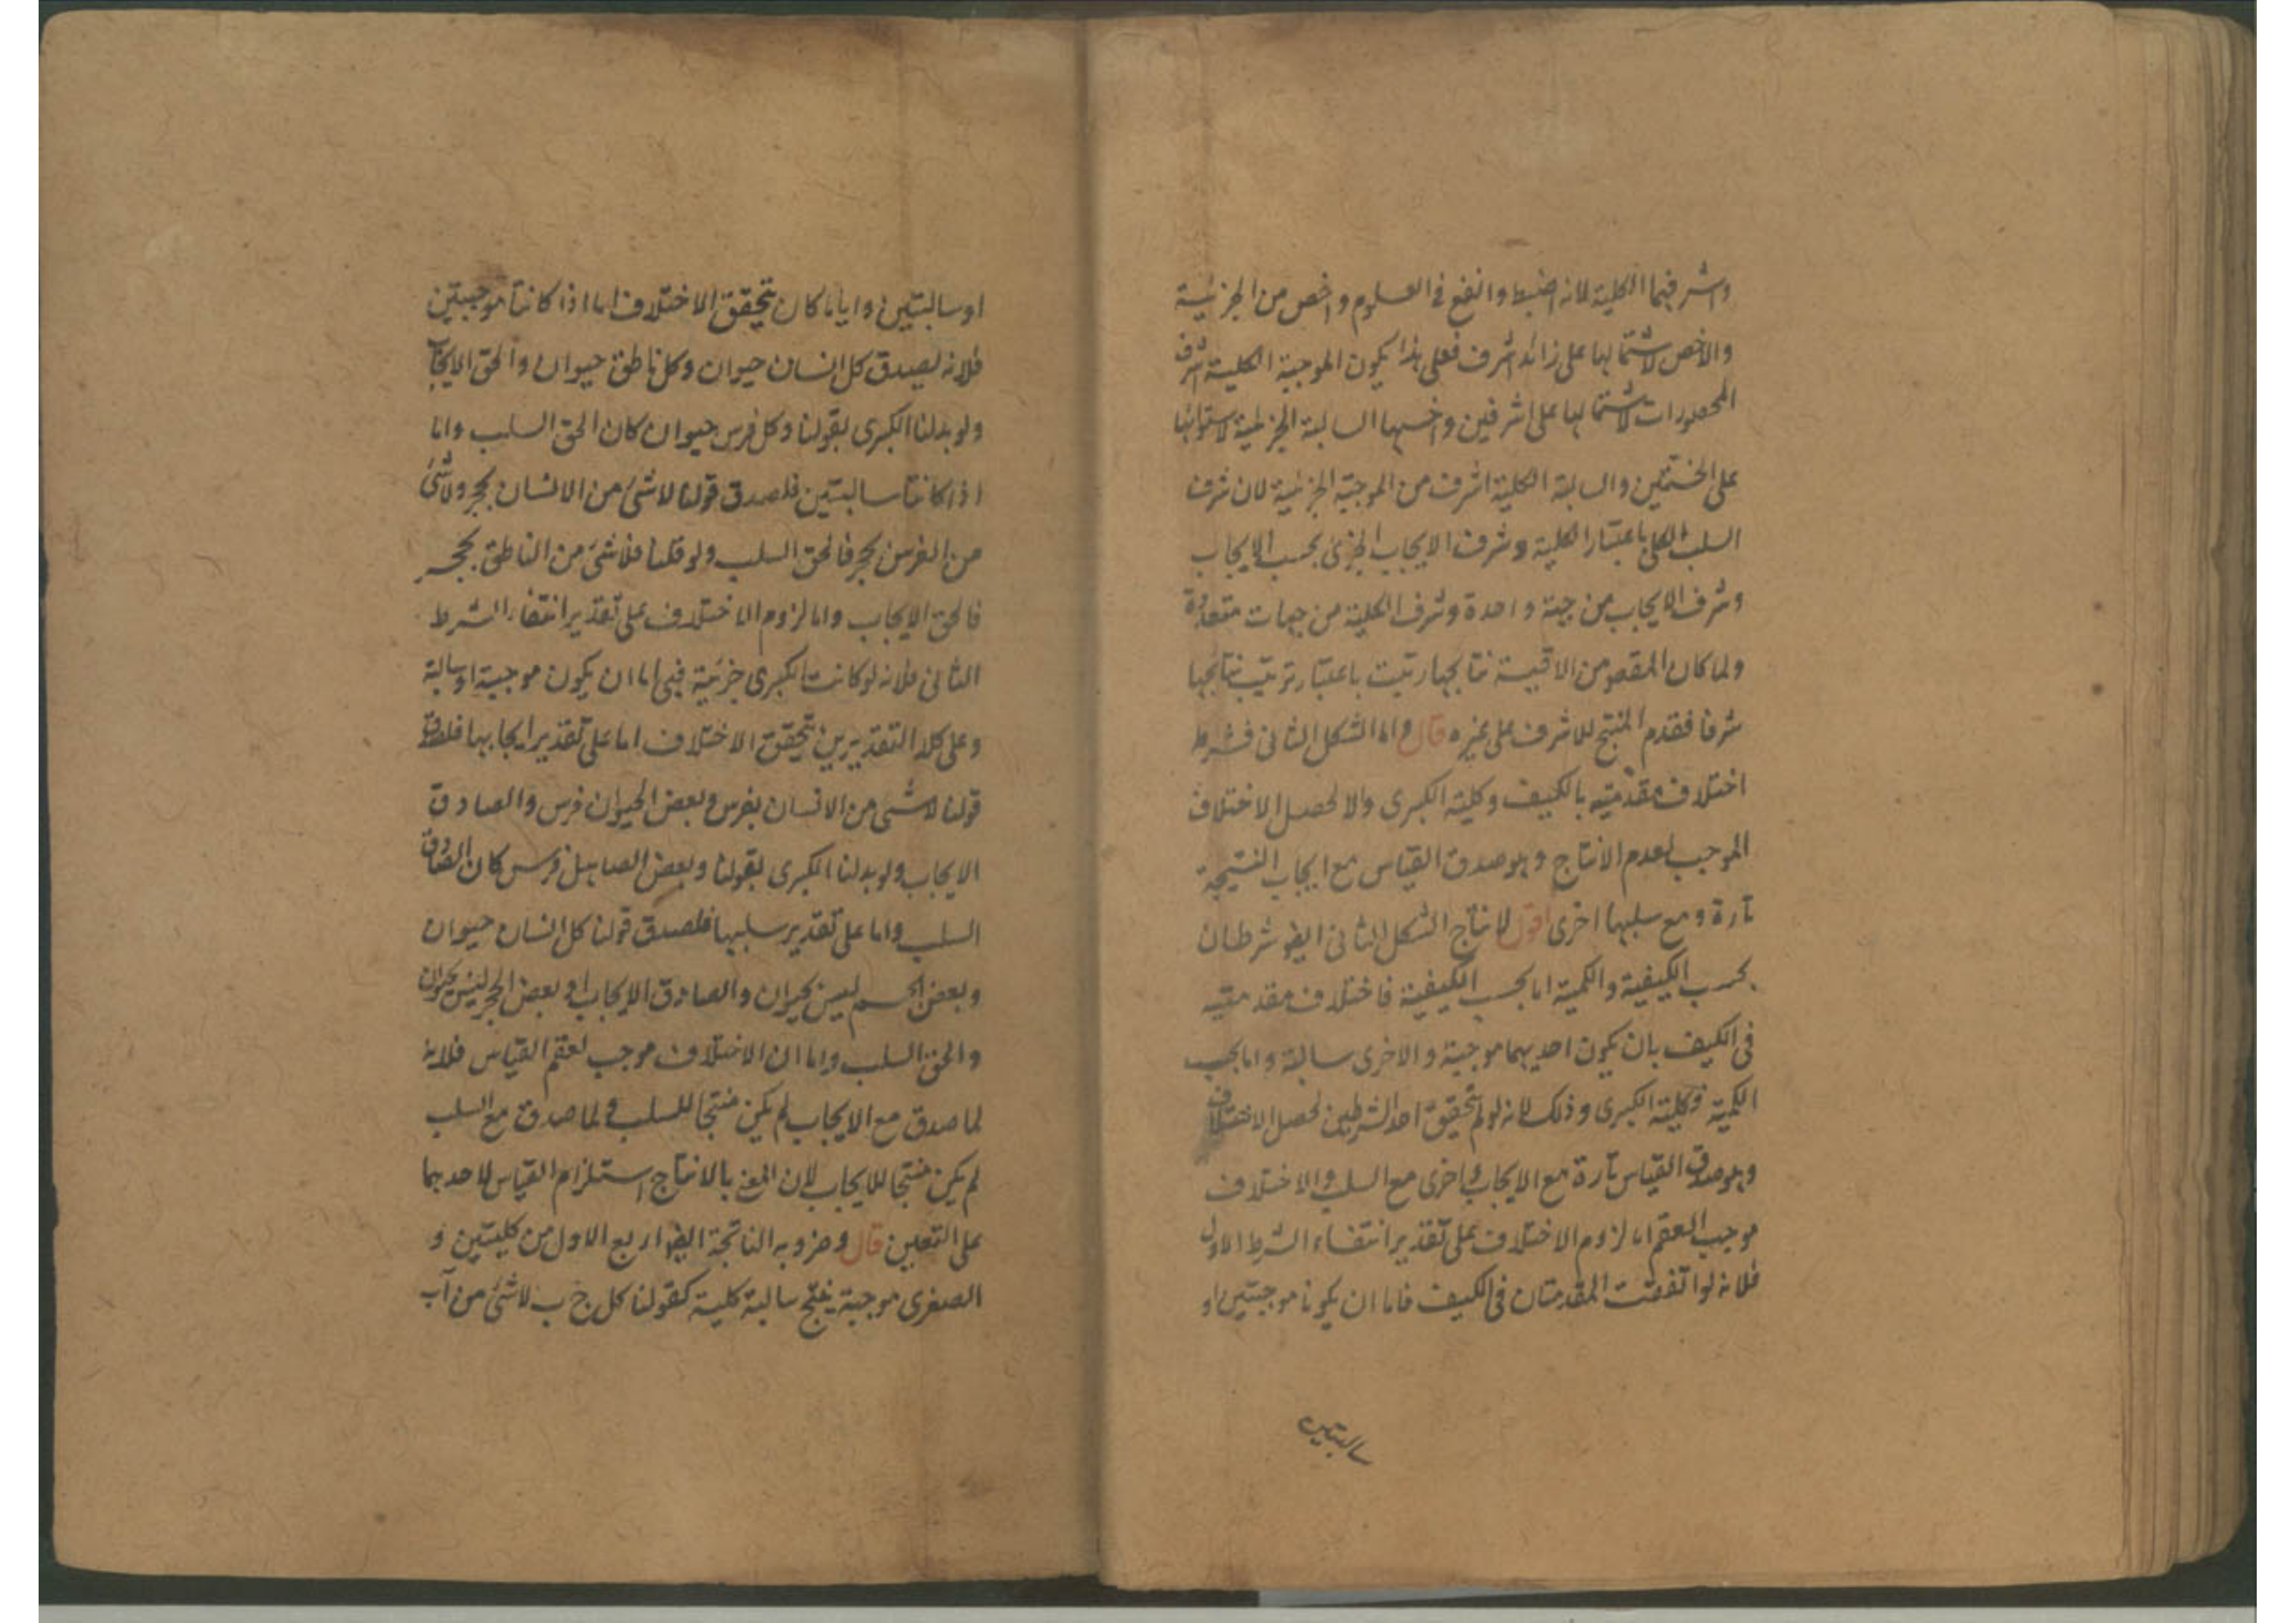 واشرفهما الكلية لانه اضبط وانفع في العلوم واخص من الجزئية
والاخص لاشتمالها على زائد اشرف فعلى هذا يكون الموجبة الكلية اشرف
المحصورات لاشتمالها على اشرفين واخسها السالبة الجزئية لاشتمالها
على الخستين والسالبة الكلية اشرف من الموجبة الجزئية لان شرف
السلب الكلي باعتبار الكلية وشرف الايجاب الجزئي بحسب الايجاب
وشرف الايجاب من جهة واحدة وشرف الكلية من جهات متعددة
ولما كان المقصو من الاقيسة نتائجها رتبت باعتبار ترتيب نتائجها
شرفا فقدم المنتج للاشرف على غيره قال واما الشكل الثاني فشرط
اختلاف مقدمتيه بالكيف وكلية الكبرى والا لحصل الاختلاف
الموجب لعدم الانتاج وهو صدق القياس مع ايجاب النتيجة
تارة ومع سلبها اخرى اقول لانتاج الشكل الثاني ايضو شرطان
بحسب الكيفية والكمية اما بحسب الكيفية فاختلاف مقدمتيه
في الكيف بان يكون احديهما موجبة والاخرى سالبة واما بحسب
الكمية فكلية الكبرى وذلك لانه لو لم يتحقق احد الشرطين لحصل الاختلاف
وهو صدق القياس تارة مع الايجاب واخرى مع السلب والاختلاف
موجب العقم اما لزوم الاختلاف على تقدير انتفاء الشرط الاول
فلانه لو اتفقت المقدمتان في الكيف فاما ان يكونا موجبتين او
سالبتين
او سالبتين واياما كان يتحقق الاختلاف اما اذا كانتا موجبتين
فلانه يصدق كل انسان حيوان وكل ناطق حيوان والحق الايجاب
ولو بدلنا الكبرى بقولنا وكل فرس حيوان كان الحق السلب واما
اذا كانتا سالبتين فلصدق قولنا لا شئ من الانسان بحجر ولا شئ
من الفرس بحجر فالحق السلب ولو قلنا فلا شئ من الناطق بحجر
فالحق الايجاب واما لزوم الاختلاف على تقدير انتفاء الشرط
الثاني فلانه لو كانت الكبرى جزئية فهي اما ان يكون موجبة او سالبة
وعلى كلا التقديرين يتحقق الاختلاف اما على تقدير ايجابها فلصدق
قولنا لا شئ من الانسان بفرس وبعض الحيوان فرس والصادق
الايجاب ولو بدلنا الكبرى بقولنا وبعض الصاهل فرس كان الصادق
السلب واما على تقدير سلبها فلصدق قولنا كل انسان حيوان
وبعض الجسم ليس بحيوان والصادق الايجاب او بعض الحجر ليس بحيوان
والحق السلب واما ان الاختلاف موجب لعقم القياس فلانه
لما صدق مع الايجاب لم يكن منتجا للسلب ولما صدق مع السلب
لم يكن منتجا للايجاب لان المعنى بالانتاج استلزام القياس لاحديهما
على التعيين قال وضروبه الناتجة ايضو اربع الاول من كليتين و
الصغرى موجبة ينتج سالبة كلية كقولنا كل ج ب لا شئ من آب